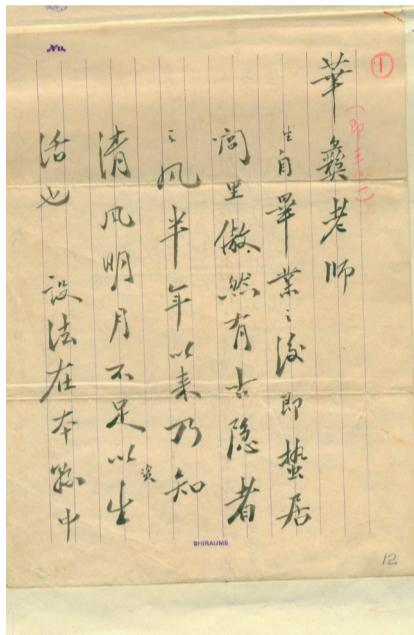 No.
①
華彝老師
生自畢業之後即蟄居
閭里傲然有古隐者
之风半年以来乃知
清风明月不足以資生
活也 設法在本縣中
SHIRAUME
12